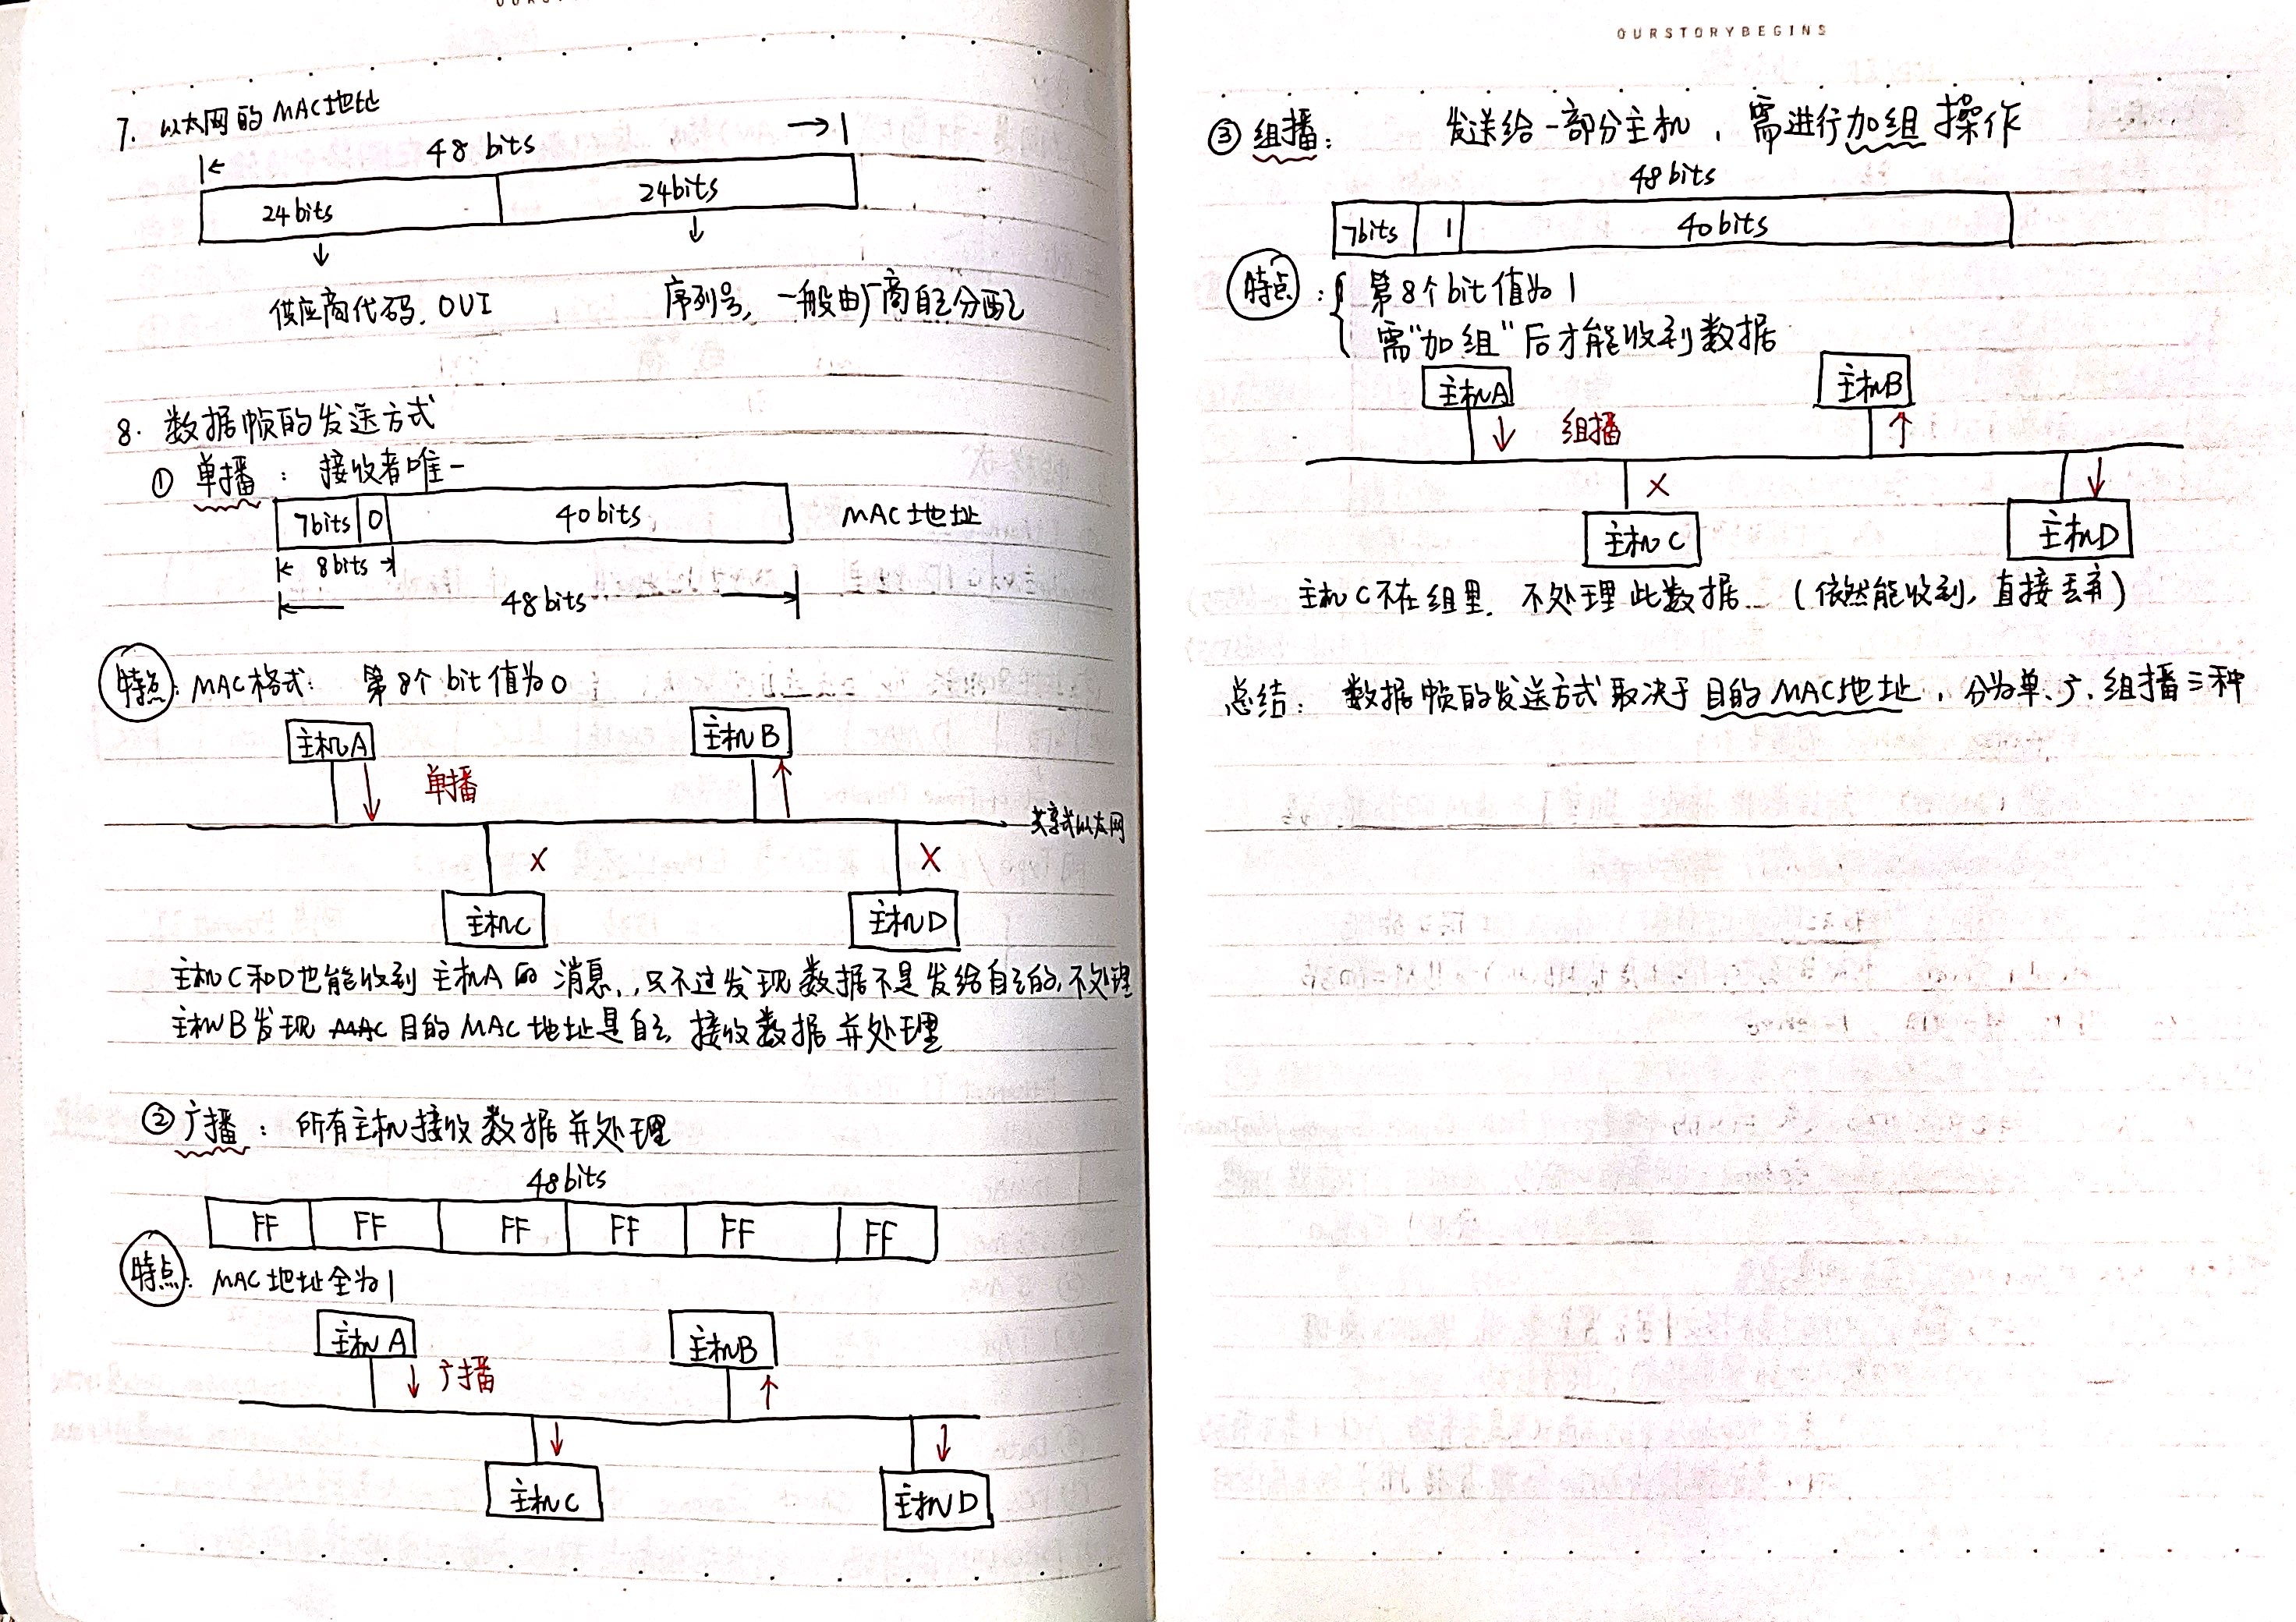 7. 以太网的 MAC地址
48 bits
24bits 24bits
供应商代码. OUI 序列号, 一般由厂商自己分配
8. 数据帧的发送方式
① 单播 : 接收者唯一
7bits 0 40bits MAC地址
8bits
48bits
特点: MAC格式: 第8个 bit 值为0
主机A 主机B
单播
共享式以太网
X X
主机C 主机D
主机C和D也能收到 主机A的 消息, 只不过发现数据不是发给自己的,不处理
主机B发现 MAC 目的 MAC 地址是自己 接收数据并处理
② 广播 : 所有主机接收数据并处理
48bits
FF FF FF FF FF FF
特点: MAC 地址全为1
主机A 主机B
广播
主机C 主机D
OURSTORYBEGINS
③ 组播: 发送给一部分主机, 需进行加组操作
48bits
7bits 1 40bits
特点: 第8个bit值为1
需"加组"后才能收到数据
主机A 主机B
组播
X
主机C 主机D
主机C不在组里. 不处理此数据 (依然能收到, 直接丢弃)
总结: 数据帧的发送方式取决于目的MAC地址, 分为单、广、组播三种